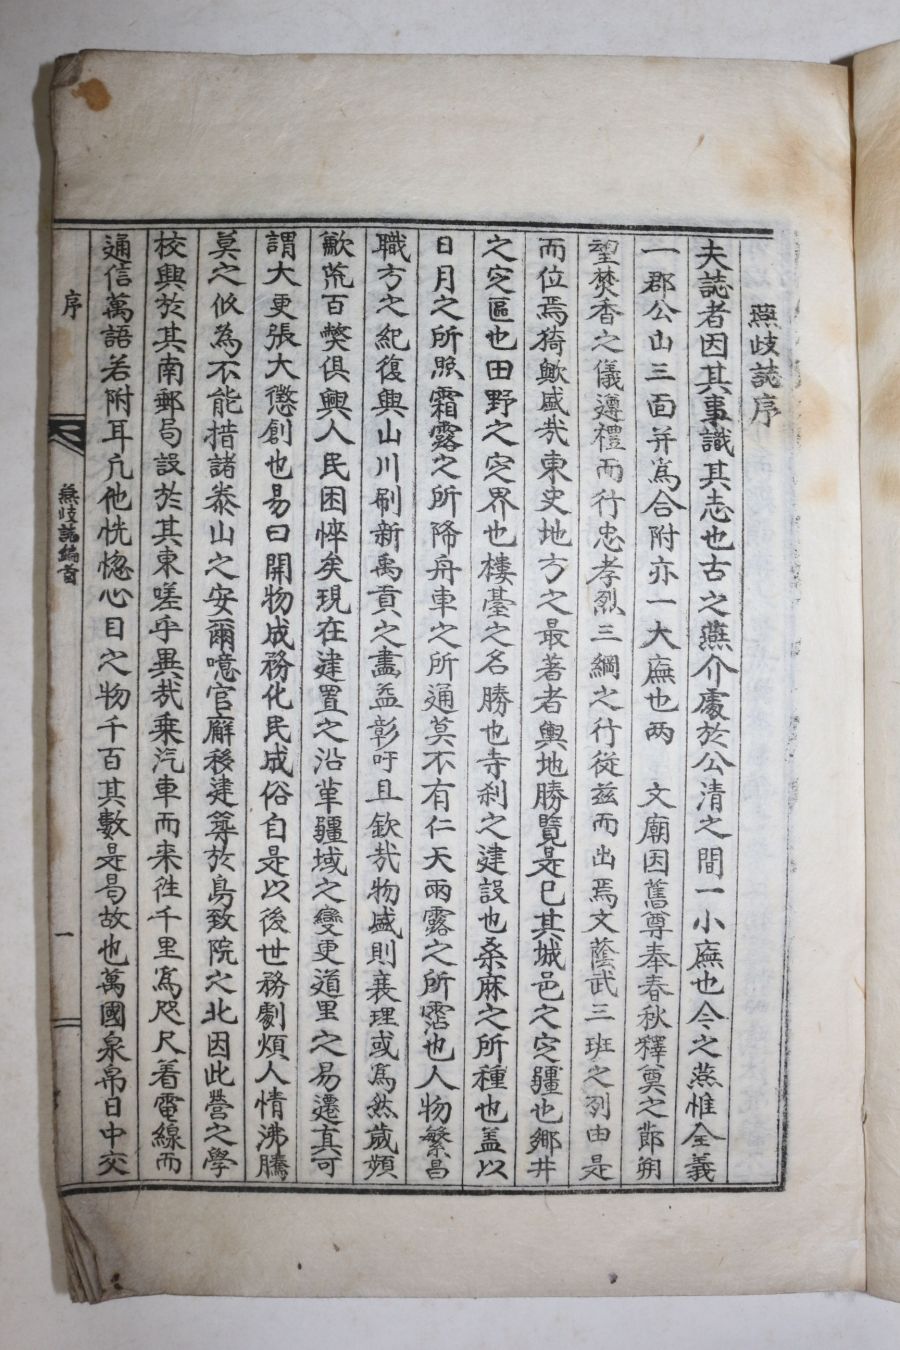 燕歧誌序
夫誌者因其事識其志也古之燕介處於公清之間一小廡也今之燕惟全義
一郡公山三面并爲合附亦一大廡也两 文廟因舊尊奉春秋釋奠之節朔
望焚香之儀遵禮而行忠孝烈三綱之行從玆而出焉文蔭武三班之列由是
而位焉猗歟盛㢤東史地方之最著者輿地勝覽是已其城邑之㝎疆也鄉井
之㝎區也田野之㝎界也樓臺之名勝也寺刹之建設也桑麻之所種也盖以
日月之所照霜露之所降舟車之所通莫不有仁天雨露之所霑也人物繁昌
職方之紀復興山川刷新禹貢之畵益彰吁且欽㢤物盛則衰理或爲然歲頻
歉荒百獘俱興人民困悴矣現在建置之沿革疆域之變更道里之易遷眞可
謂大更張大懲創也易曰開物成務化民成俗自是以後世務劇煩人情沸騰
莫之攸爲不能措諸泰山之安爾噫官廨移建等於鳥致院之北因此營之學
校興於其南郵局設於其東嗟乎異㢤乘汽車而来徃千里爲咫尺着電線而
通信萬語若附耳凢他恍惚心目之物千百其數是曷故也萬國泉帛日中交
序
燕歧誌編首
一